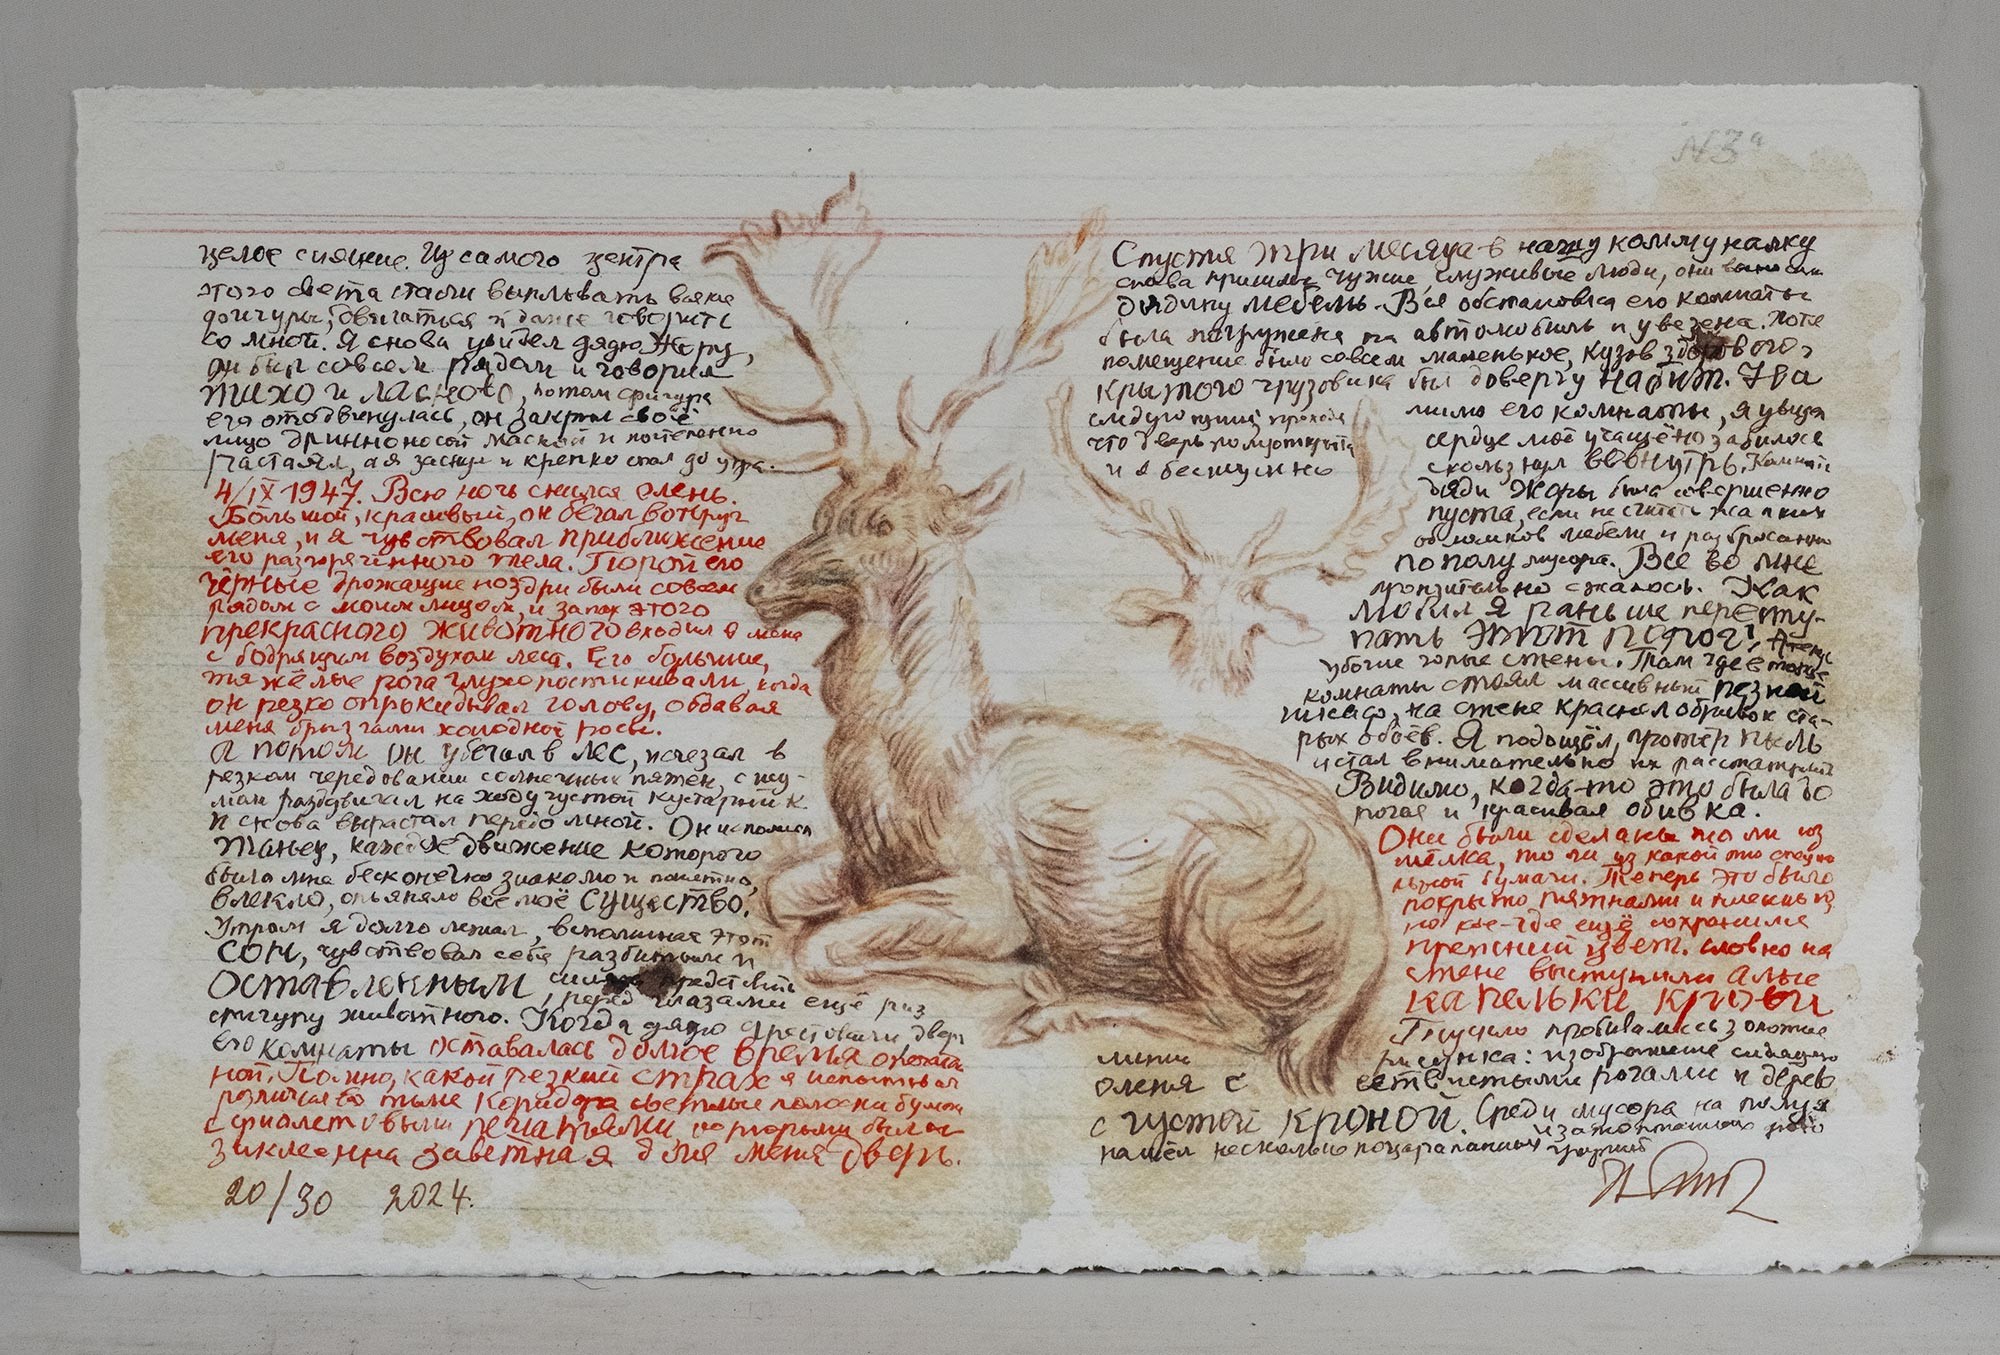 N3а
целое сияние. Из самого центра
этого света стали выплывать всякие
фигуры, двигаться и даже говорить
со мной. Я снова увидел дядю Жору,
он был совсем рядом и говорил
тихо и ласково, потом фигура
его отодвинулась, он закрыл своё
лицо длинноносой маской и постепенно
растаял, а я заснул и крепко спал до утра.
4/IX 1947. Всю ночь снился олень.
Большой, красивый, он бегал вокруг
меня, и я чувствовал приближение
его разгорячённого тела. Порой его
чёрные дрожащие ноздри были совсем
рядом с моим лицом, и запах этого
прекрасного животного входил в меня
с бодрящим воздухом леса. Его большие,
тяжёлые рога глухо постукивали, когда
он резко опрокидывал голову, обдавая
меня брызгами холодной росы.
А потом он убегал в лес, исчезал в
резком чередовании солнечных пятен, с шу-
мом раздвигал на ходу густой кустарник
и снова вырастал передо мной. Он исполнял
танец, каждое движение которого
было мне бесконечно знакомо и понятно,
влекло, опьяняло всё моё существо.
Утром я долго лежал, вспоминая этот
сон, чувствовал себя разбитым и
оставленным, представить
перед глазами ещё раз
фигуру животного. Когда дядю арестовали дверь
его комнаты оставалась долгое время опечатан
ной. Помню, какой резкий страх я испытывал
различая во тьме коридора светлые полоски бумаги
с фиолетовыми печатями, которыми была
заклеенна заветная для меня дверь.
20/30 2024.
Спустя три месяца в нашу коммуналку
снова пришли чужие, служивые люди, они выносили
дядину мебель. Вся обстановка его комнаты
была погружена на автомобиль и увезена. Хотя
помещение было совсем маленькое, кузов здорового,
крытого грузовика был доверху набит.
следующий проходя мимо его комнаты, я увидел
что дверь полуоткрыта сердце моё учащённо забилось
и я бесшумно скользнул вовнутрь. Комната
дяди Жоры была совершенно
пуста, если не считать жалких
обломков мебели и разбросанного
по полу мусора. Всё во мне
пронзительно сжалось. Как
любил я раньше пересту-
пать этот порог! А теперь
убогие голые стены. Там где в конце
комнаты стоял массивный резной
шкаф, на стене краснел обрывок ста-
рых обоев. Я подошёл, протёр пыль
и стал внимательно их рассматривать
Видимо, когда-то это была до
рогая и красивая обивка.
Они были сделаны то ли из
шёлка, то ли из какой то специа
льной бумаги. Теперь это было
покрыто пятнами и плесенью,
но кое-где ещё сохранился
прежний цвет. словно на
стене выступили алые
капельки крови
Тускло пробивались золотые
рисунка: изображение сидящего
оленя с ветвистыми рогами и дерево
с густой кроной. Среди мусора на полу я
нашёл несколько поцарапанных и затоптанных фото
графий